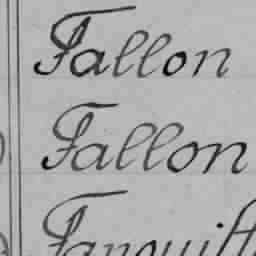 Fallon
Fallon